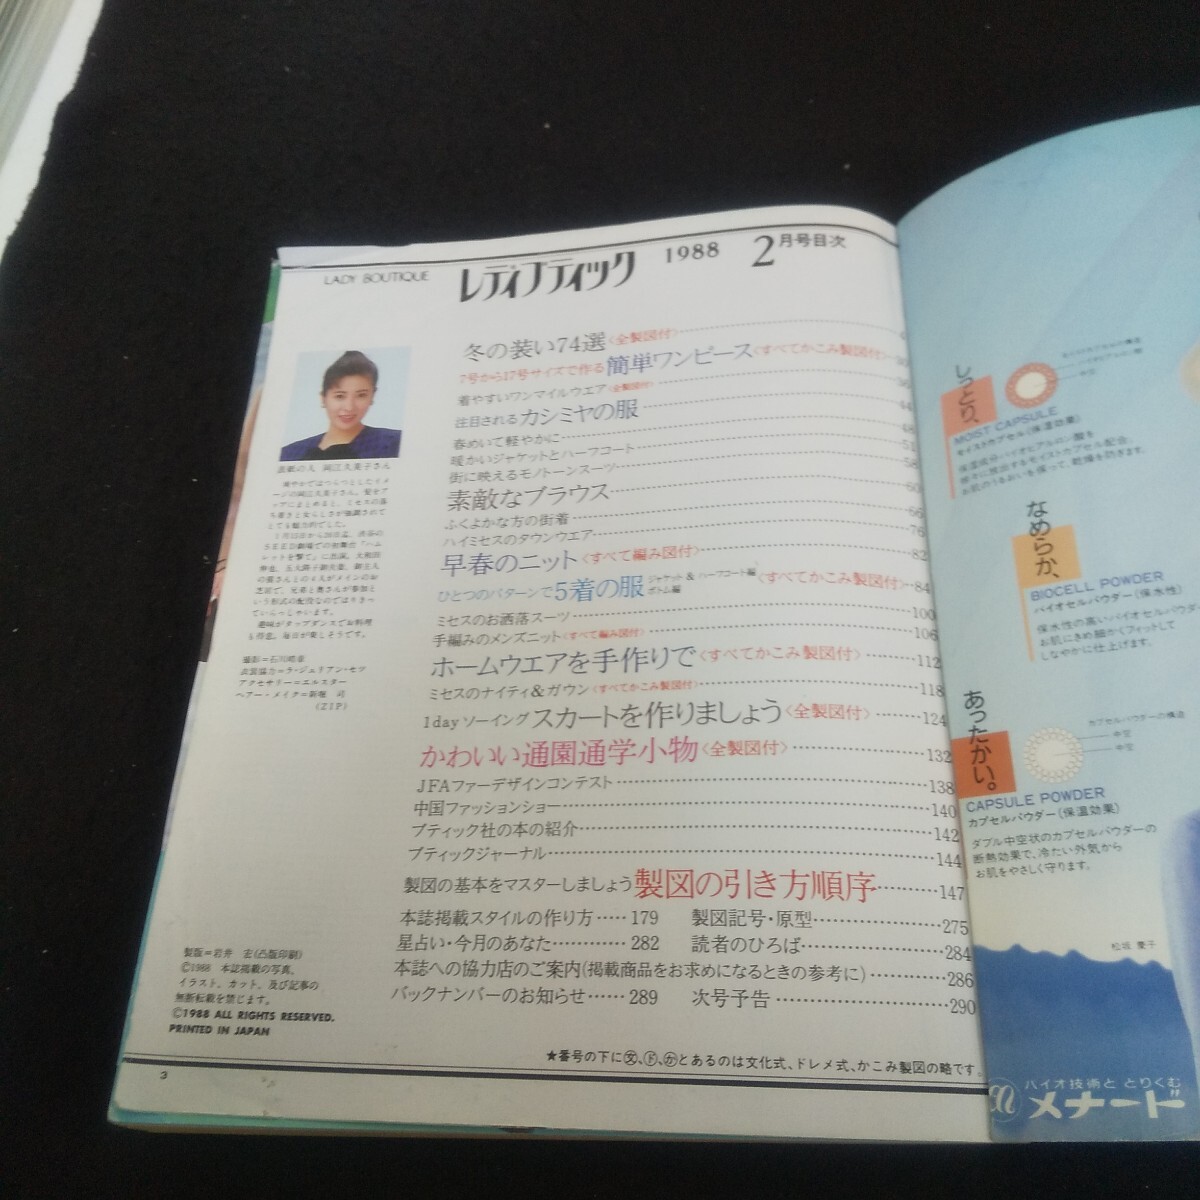 LADY BOUTIQUE
レディブティック 1988 2月号目次
冬の装い74選〈全製図付〉
7号から17号サイズで作る簡単ワンピース〈すべてかこみ製図付〉
着やすいワンマイルウエア〈全製図付〉
注目されるカシミヤの服 44
春めいて軽やかに 48
暖かいジャケットとハーフコート 51
街に映えるモノトーンスーツ 58
素敵なブラウス 60
ふくよかな方の街着 66
ハイミセスのタウンウエア 76
早春のニット〈すべて編み図付〉 82
ひとつのパターンで5着の服 ジャケット&ハーフコート編 ボトム編〈すべてかこみ製図付〉 84
ミセスのお洒落スーツ 100
手編みのメンズニット〈すべて編み図付〉 106
ホームウエアを手作りで〈すべてかこみ製図付〉 112
ミセスのナイティ&ガウン〈すべてかこみ製図付〉 118
1dayソーイングスカートを作りましょう〈全製図付〉 124
かわいい通園通学小物〈全製図付〉 132
JFAファーデザインコンテスト 138
中国ファッションショー 140
ブティック社の本の紹介 142
ブティックジャーナル 144
製図の基本をマスターしましょう製図の引き方順序 147
本誌掲載スタイルの作り方 179
製図記号・原型 275
星占い・今月のあなた 282
読者のひろば 284
本誌への協力店のご案内(掲載商品をお求めになるときの参考に) 286
バックナンバーのお知らせ 289
次号予告 290
★番号の下に文、ド、かとあるのは文化式、ドレメ式、かこみ製図の略です。
表紙の人 岡江久美子さん
撮影=石川晴章
衣裳協力=ラ・ジュリアン・セツ
アクセサリー=エルスター
ヘアー・メイク=新堀 司
(ZIP)
製版=岩井 宏(凸版印刷)
©1988 本誌掲載の写真、
イラスト、カット、及び記事の
無断転載を禁じます。
©1988 ALL RIGHTS RESERVED.
PRINTED IN JAPAN
3
しっとり、
MOIST CAPSULE
モイストカプセル(保湿効果)
保湿成分バイオヒアルロン酸を
徐々に放出するモイストカプセル配合。
お肌のうるおいを保って、乾燥を防ぎます。
なめらか、
BIOCELL POWDER
バイオセルパウダー(保水性)
保水性の高いバイオセルパウダ
お肌にきめ細かくフィットして
しなやかに仕上げます。
あったかい。
カプセルパウダーの構造
中空
中空
CAPSULE POWDER
カプセルパウダー(保温効果)
ダブル中空状のカプセルパウダーの
断熱効果で、冷たい外気から
お肌をやさしく守ります。
松坂 慶子
バイオ技術と とりくむ
メナード